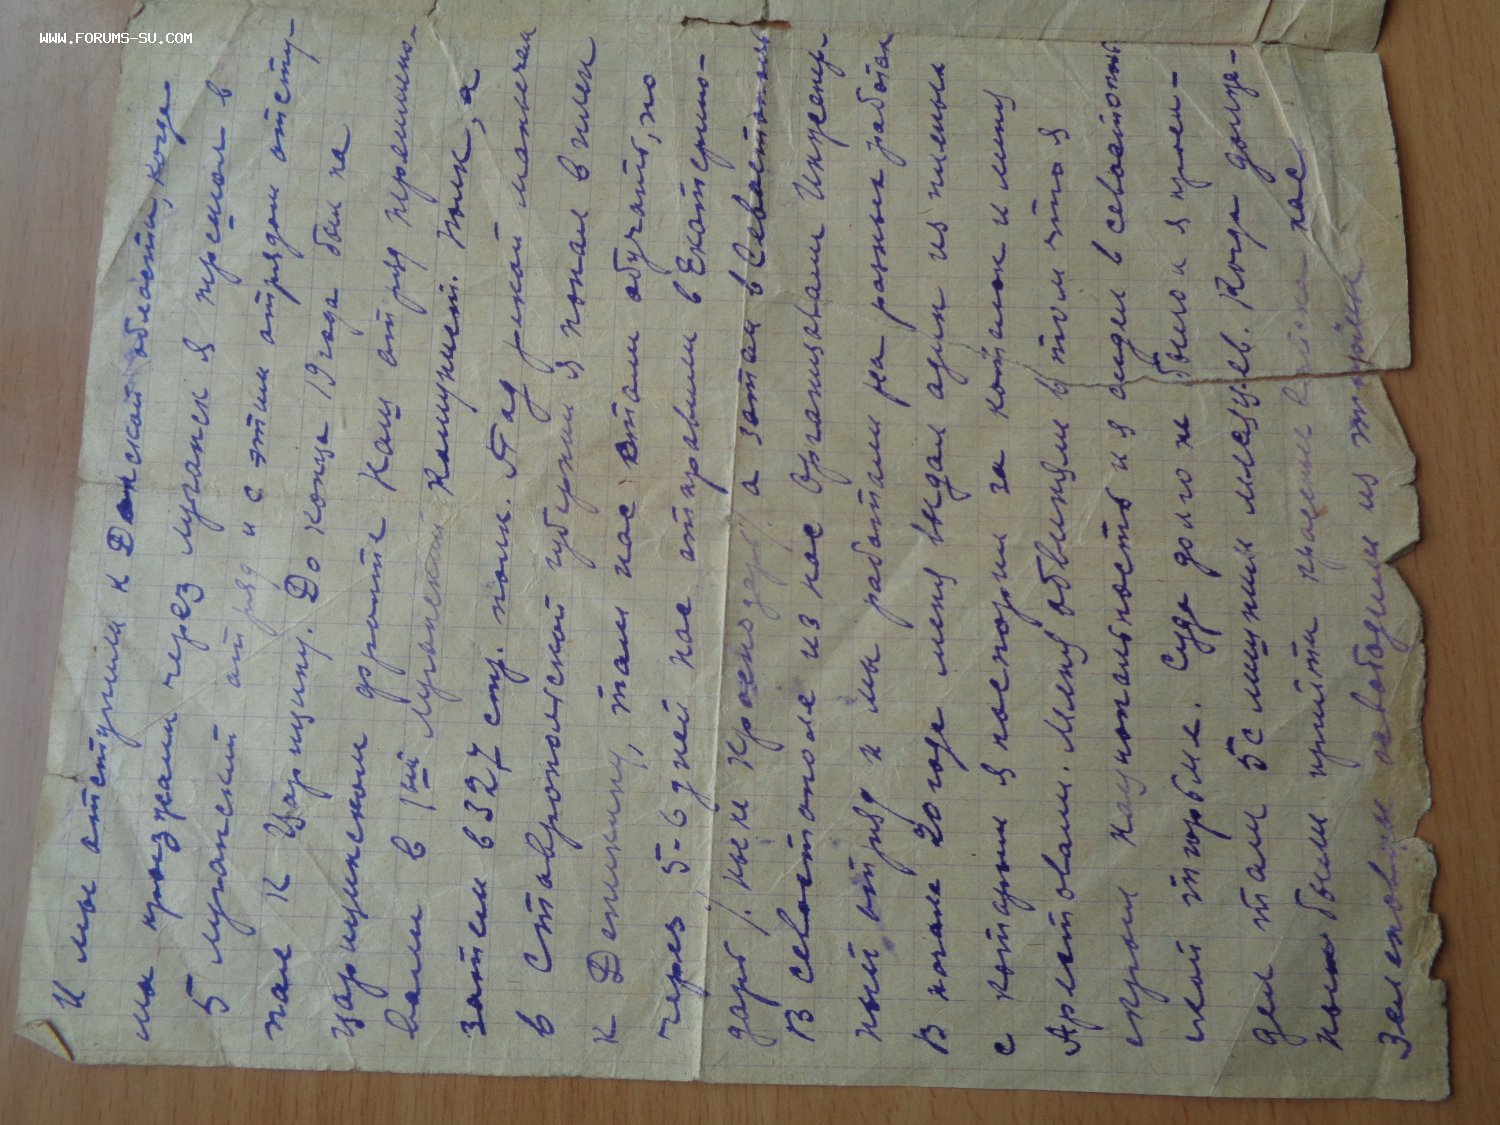 WWW.FORUMS-SU.COM
И мы отступили к Донской области, когда
мы проэжали через луганск я пришол в
5 луганский отряд и с этим отрядом отсту-
пал к Царицину. До конца 19 года был на
царицинском фронте Наш отряд переимено-
вали в 1ый луганский Комунист. полк, а
затем в 327 стр. полк. Под рекой манычам
в Ставропольской губернии я попал в плен
к Деникину, там нас стали обучать, но
через 5-6 дней нас отправили в Екатерино-
дар /. ныне Краснодар/. а затам в Севастополь
В севастополе из нас Организвали Инженер-
ный отряд и мы работали на разных работах
В начале 20 годе меня выдал один из пленых
с которым я поспорил за котилок и миня
Арестовали. Миня обвиняли в том что я
скрыл нацианальность и я сидел в севастополь
ской тюрьме. Суда долго не было и я проси-
дел там 5 с лишним месяцев. Когда донце-
были прийти красные войска нас
Зеленовцы освободили из тюрьмы